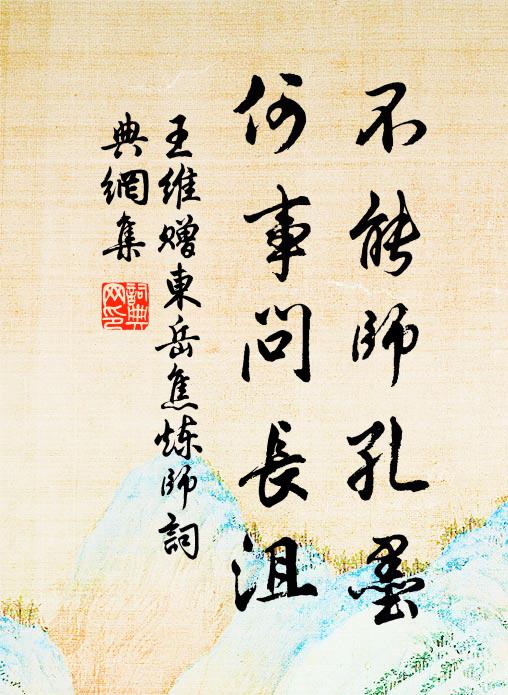 不能師孔墨
何事問長沮
王維贈東岳焦煉師詞
典網集
詞典
网印